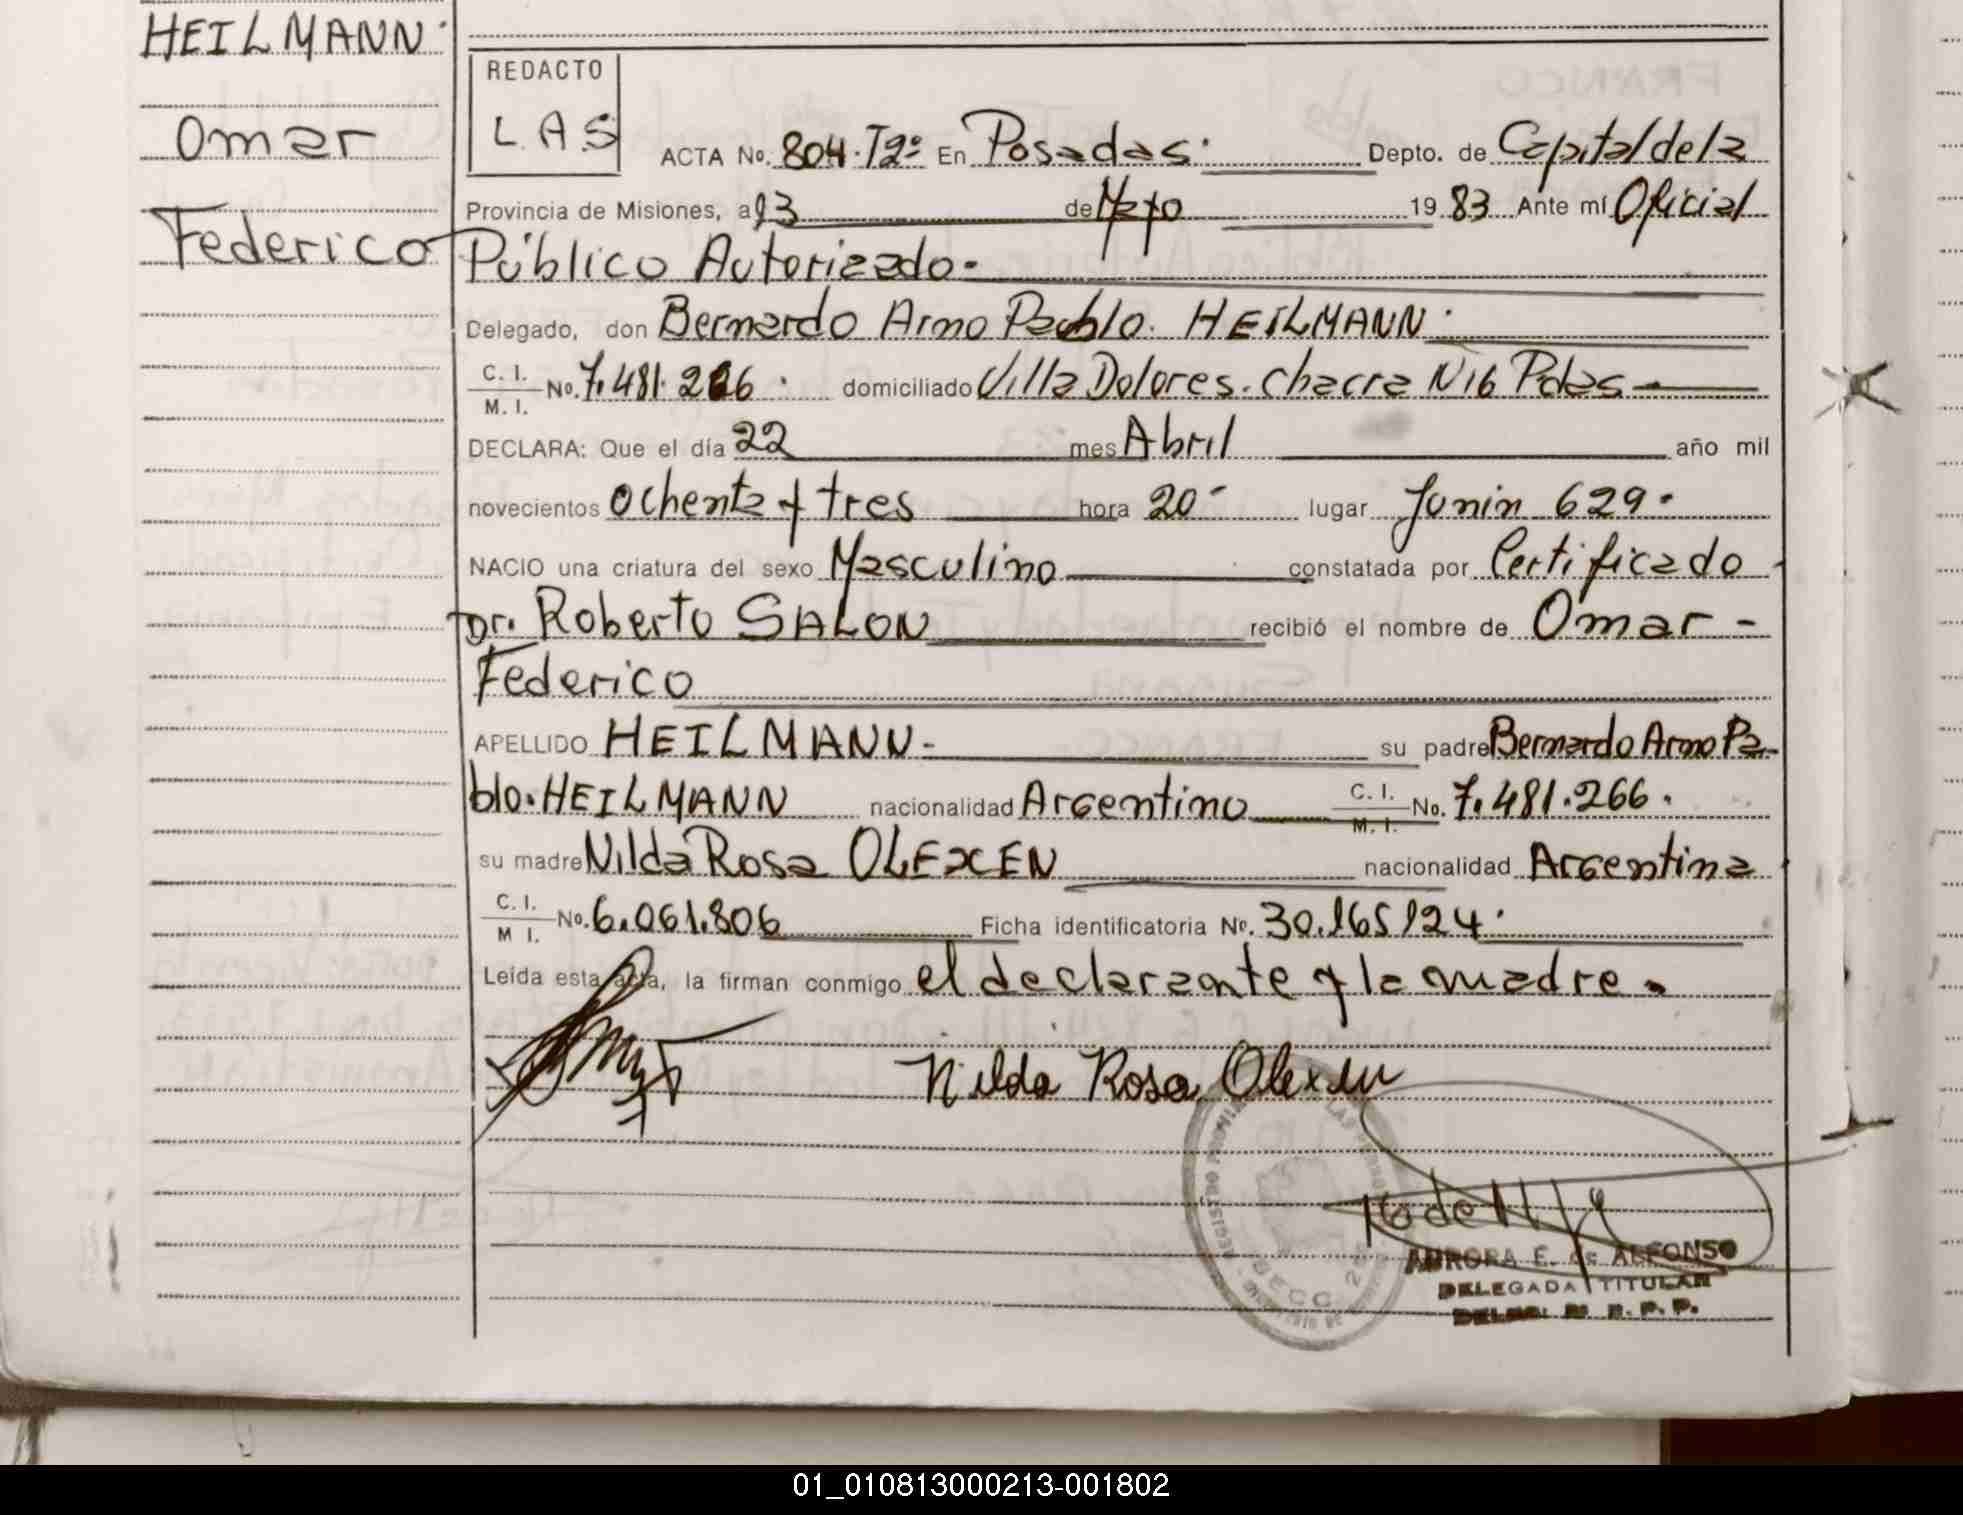 HEILMANN.
Omar
Federico
REDACTO
L.A.S
ACTA No. 804. T2º En Posadas. Depto. de Capital de la
Provincia de Misiones, a 13 de Mayo 19 83 Ante mí Oficial
Público Autorizado.
Delegado, don Bernardo Arno Pablo. HEILMANN.
C. I.
M. I. No. 7.481.266. domiciliado Villa Dolores. Chacra N16 Pdas
DECLARA: Que el día 22 mes Abril año mil
novecientos ochenta y tres hora 20- lugar Junin 629.
NACIO una criatura del sexo Masculino constatada por Certificado
Dr. Roberto SALON recibió el nombre de Omar -
Federico
APELLIDO HEILMANN- su padre Bernardo Arno Pa-
blo. HEILMANN nacionalidad Argentino C. I. M. I. No. 7.481.266.
su madre Nilda Rosa OLEXEN nacionalidad Argentina
C. I.
M I. No. 6.061.806 Ficha identificatoria Nº. 30.165124.
Leída esta acta, la firman conmigo el declarante y la madre.
Nilda Rosa Olexen
AURORA E. de ALFONSO
DELEGADA TITULAR
01_010813000213-001802